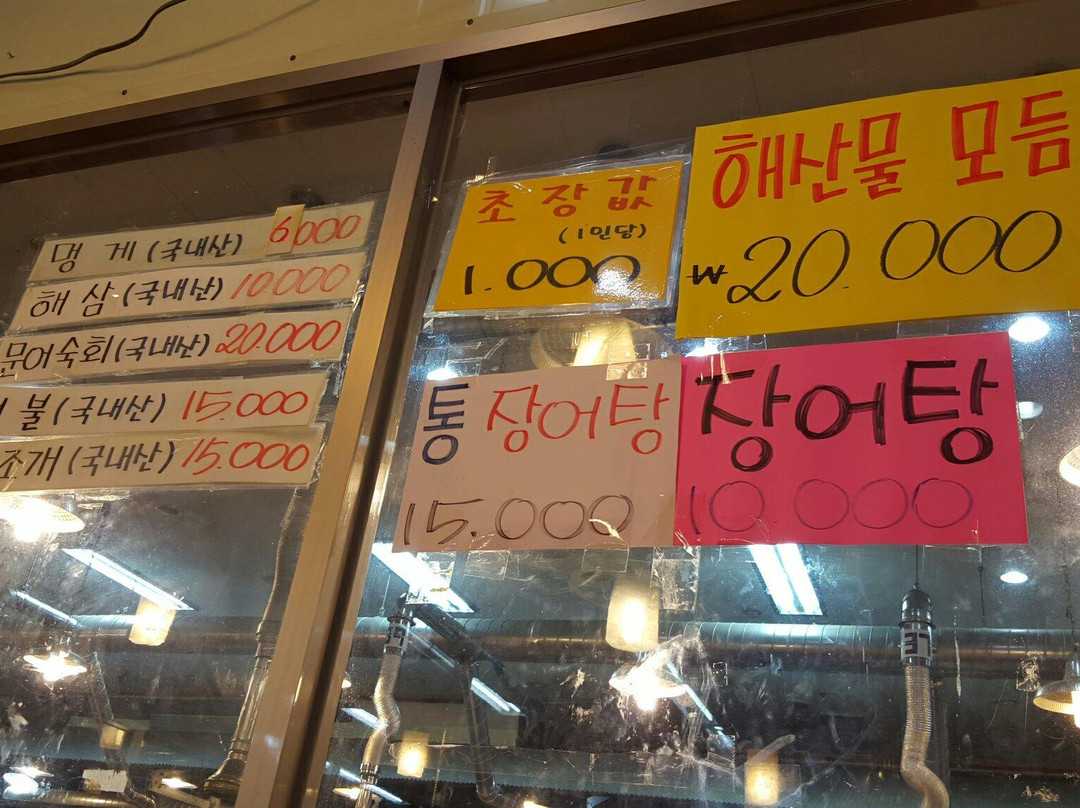 댕 게 (국내산) 6000
해 삼 (국내산) 10000
문어숙회 (국내산) 20.000
불 (국내산) 15.000
조개 (국내산) 15.000
초 장 값
(1인당)
1.000
해산물 모듬
₩20.000
통 장어탕
15.000
장어탕
10.000
37